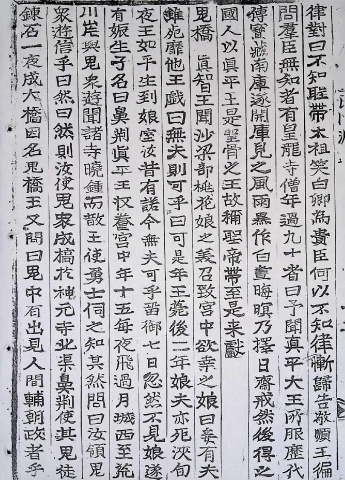 律對曰不知聖帶太祖笑曰卿爲貴臣何以不知律慚歸告敬順王徧
問羣臣無知者有皇龍寺僧年過九十者曰予聞眞平大王所服歷代
傳寶藏南庫遂開庫見之風雨黑作白晝晦暝乃擇日齋戒然後得之
國人以眞平王是聖骨之王故稱聖帝帶至是來獻
鬼橋 眞智王聞沙梁部桃花娘之美召致宮中欲幸之娘曰妾有夫
雖死靡他王戱曰無夫則可乎曰可是年王薨後二年娘夫亦死浹旬
夜王如平生到娘室汝昔有諾今無夫可乎留御七日忽然不見娘遂
有娠生子名曰鼻荊眞平王收養宮中年十五每夜飛過月城西至荒
川岸與鬼衆遊聞諸寺曉鍾而散王使勇士伺之知其然問曰汝領鬼
衆遊信乎曰然曰然則汝使鬼衆成橋於神元寺北渠鼻荊使其鬼徒
鍊石一夜成大橋因名鬼橋王又問曰鬼中有出見人間輔朝政者乎